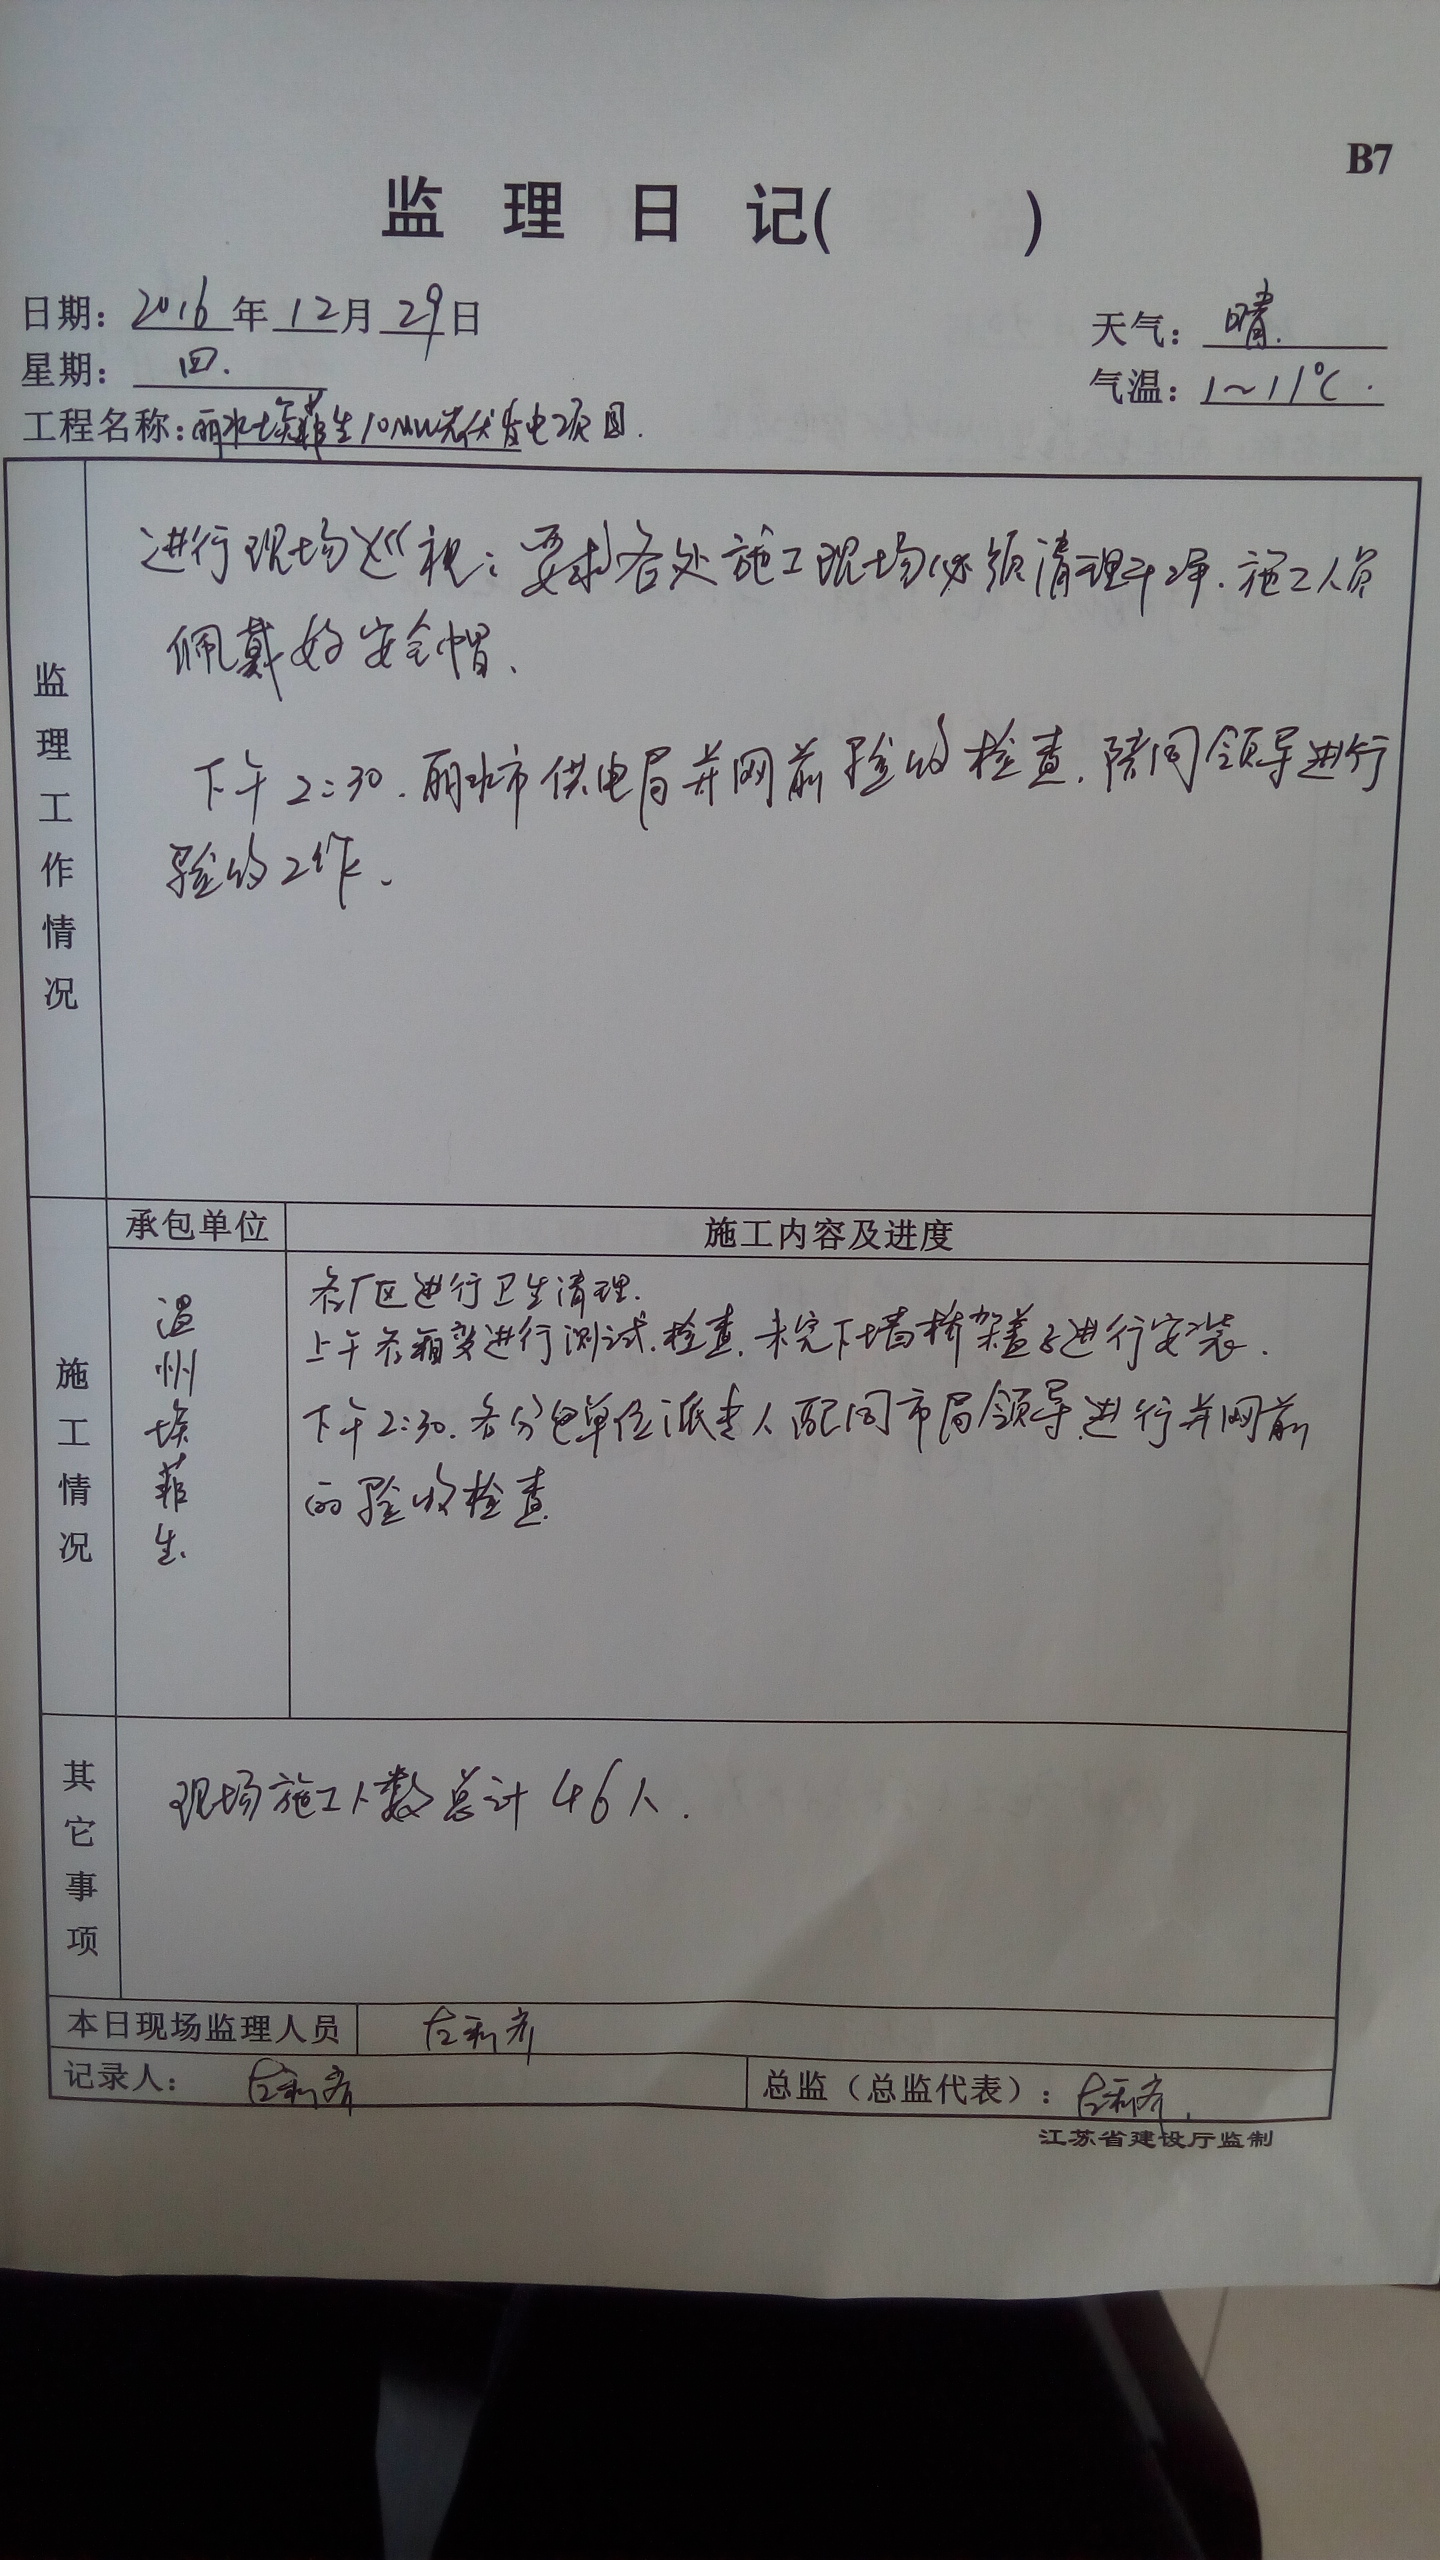 B7
监理日记( )
日期：2016年12月29日
天气：晴.
星期：四.
气温：1～11℃.
工程名称：丽水埃菲生10MW光伏发电项目.
监理工作情况
进行现场巡视：要求各处施工现场必须清理干净.施工人员
佩戴好安全帽、
下午2:30.丽水市供电局并网前验收检查.陪同领导进行
验收工作、
施工情况
承包单位
施工内容及进度
温州埃菲生.
各厂区进行卫生清理.
上午各箱变进行测试.检查.未完下墙桥架盖子进行安装.
下午2:30.各分包单位派专人配同市局领导进行并网前
的验收检查.
其它事项
现场施工人数总计46人.
本日现场监理人员
记录人：
总监（总监代表）：
江苏省建设厅监制